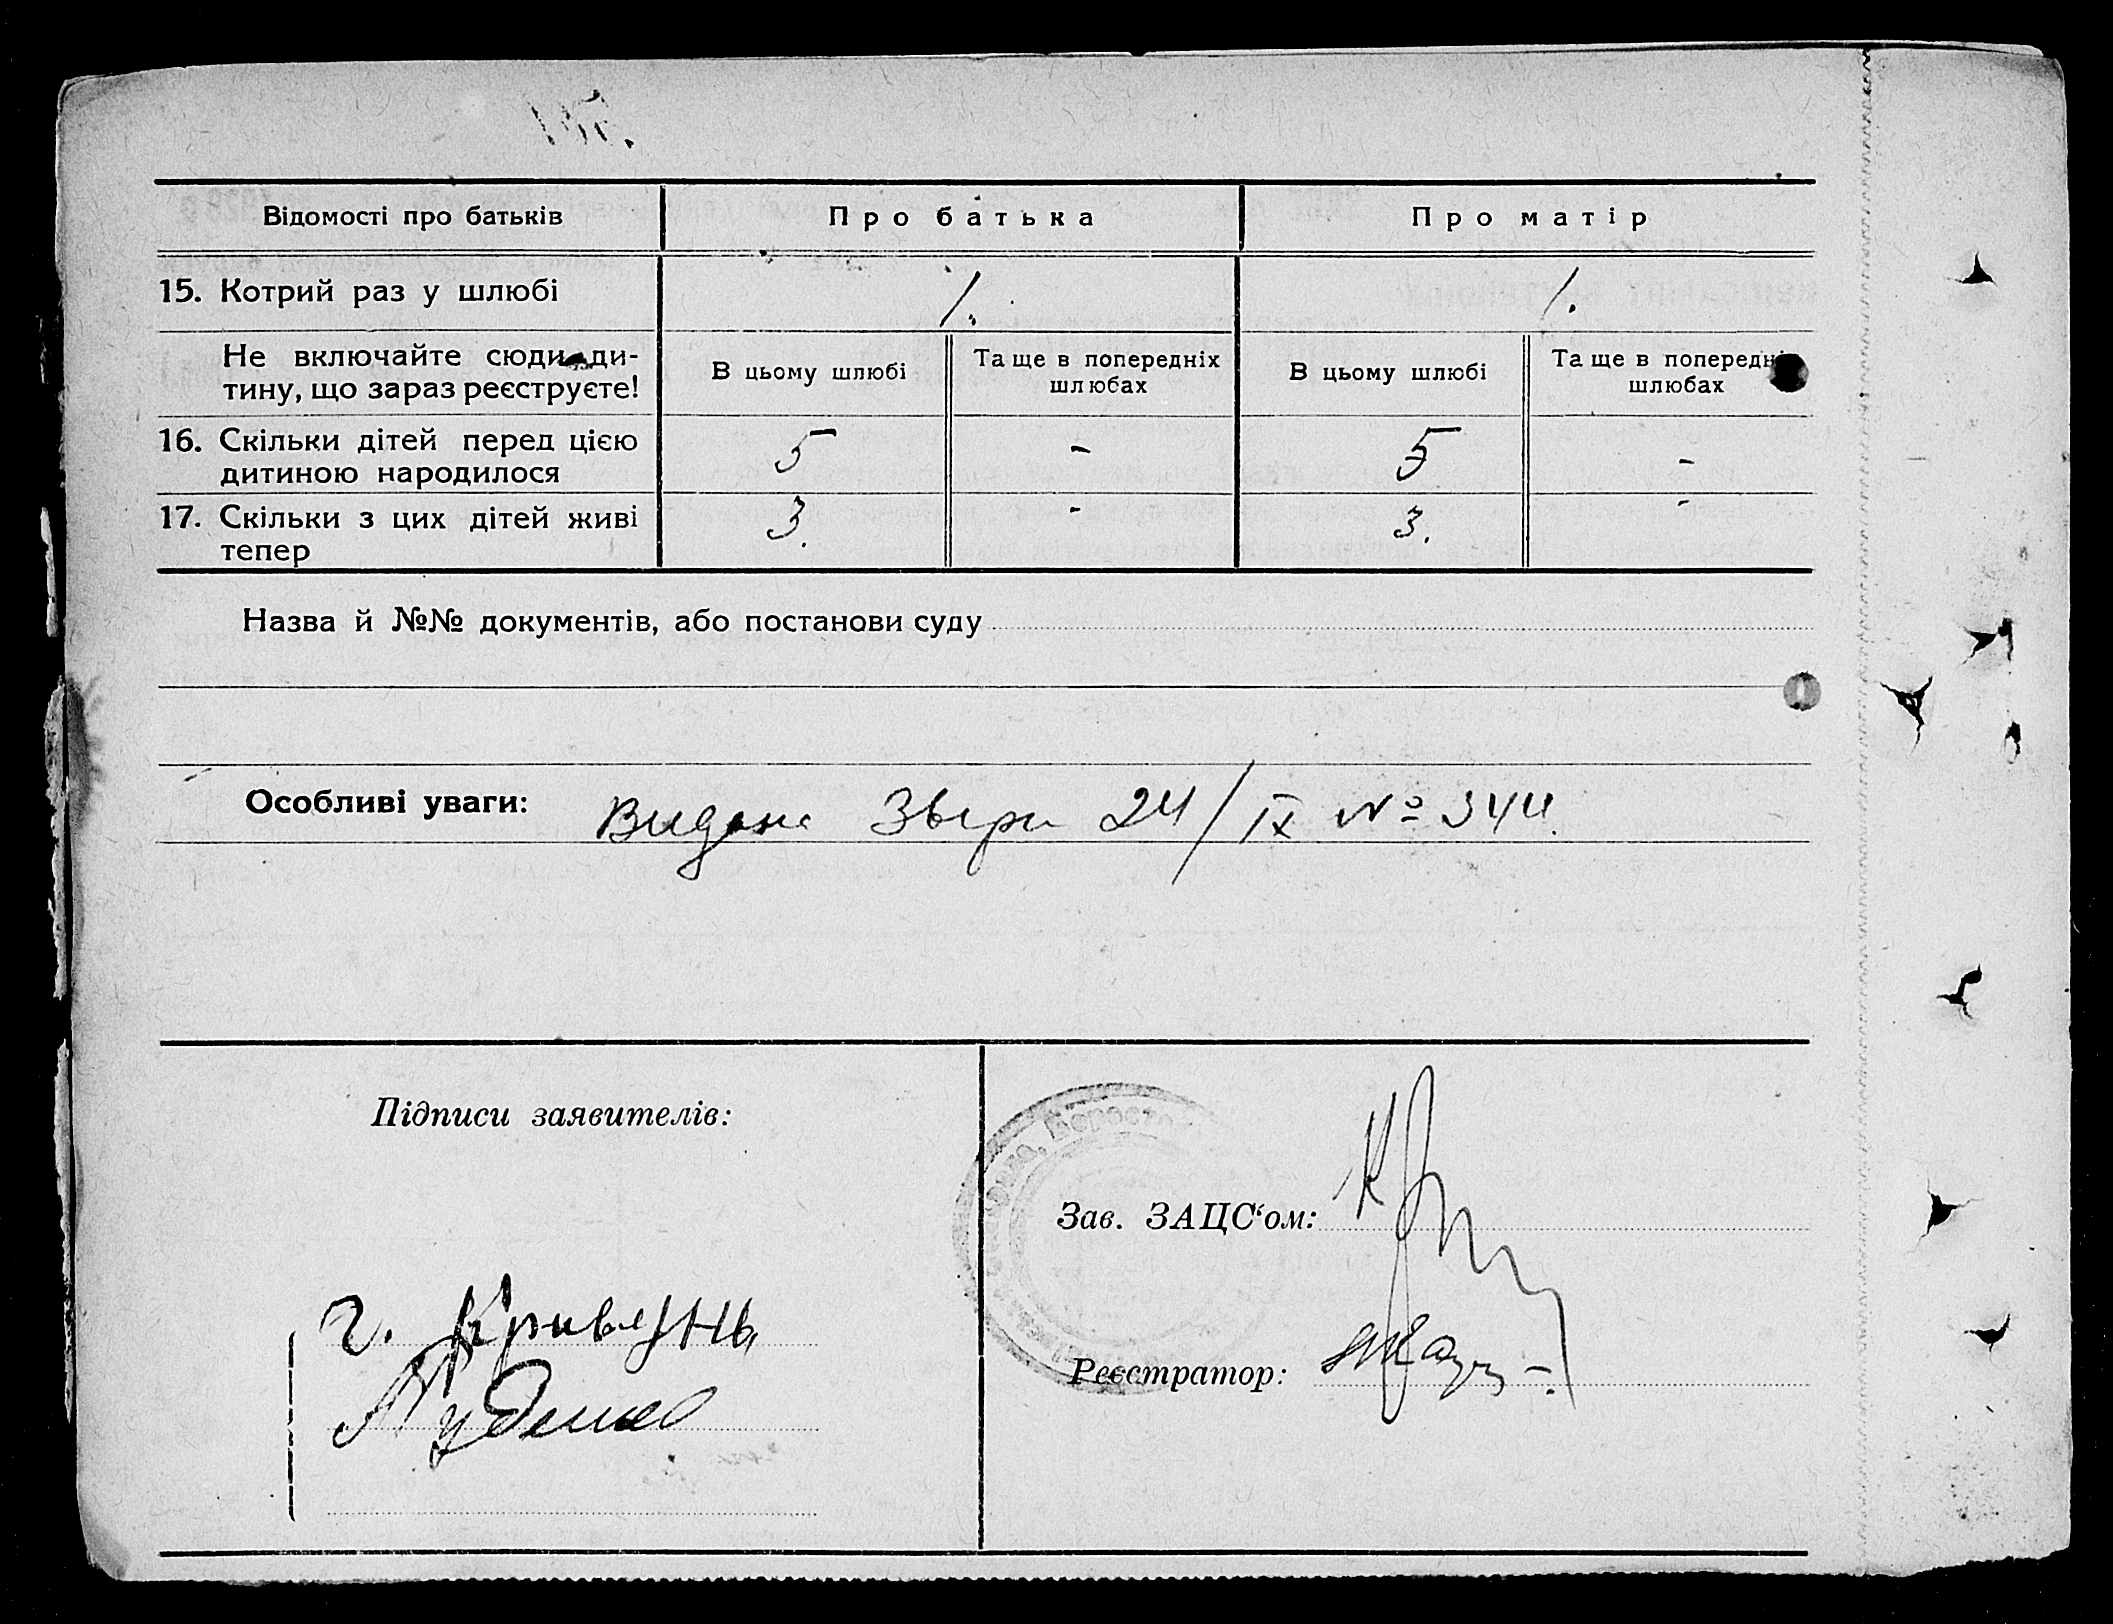 Відомості про батьків Про батька Про матір
15. Котрий раз у шлюбі 1. 1.
Не включайте сюди ди-
тину, що зараз реєструєте!
В цьому шлюбі
Та ще в попередніх
шлюбах
В цьому шлюбі
Та ще в попередніх
шлюбах
16. Скільки дітей перед цією
дитиною народилося
5 - 5 -
17. Скільки з цих дітей живі
тепер
3. - 3. -
Назва й №№ документів, або постанови суду
Особливі уваги: 24/IX № 344.
Підписи заявителів:
Зав. ЗАЦС‘ом:
Реєстратор: